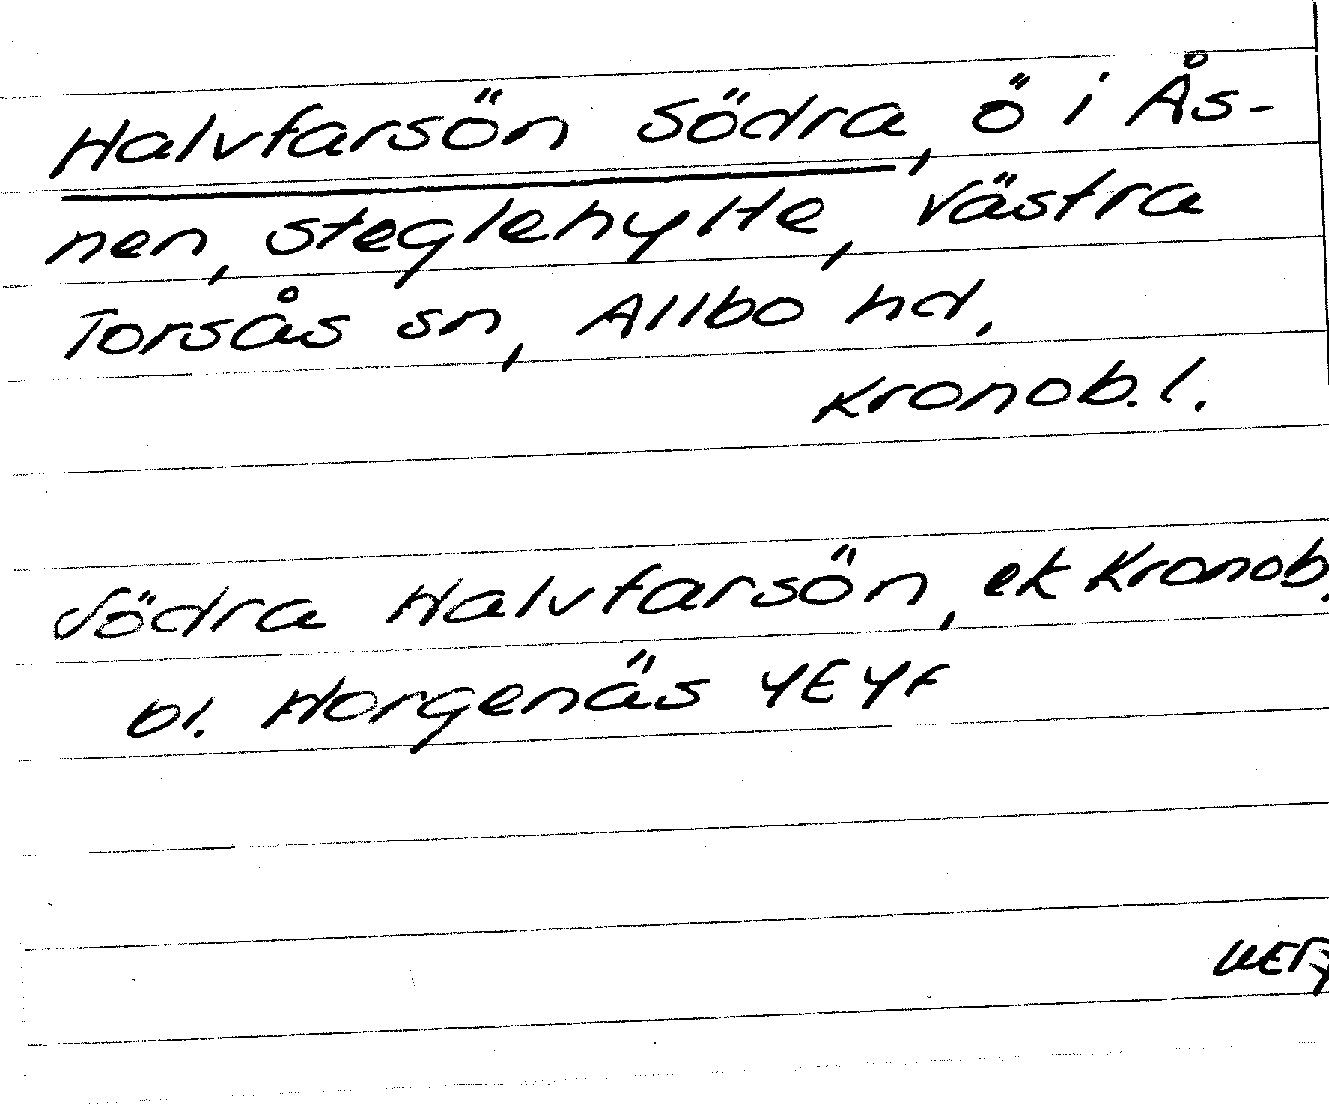 Halvfarsön Södra, ö i Ås-
nen, Steglehylte, Västra
Torsås sn, Allbo hd.
Kronob. l.
Södra Halvfarsön, ek Kronob.
bl. Horgenäs 4E4F